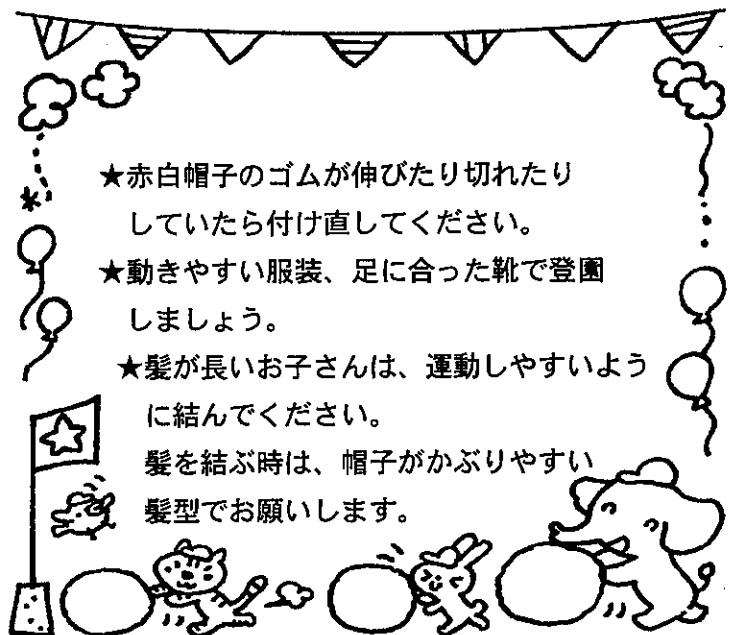 ★赤白帽子のゴムが伸びたり切れたり
していたら付け直してください。
★動きやすい服装、足に合った靴で登園
しましょう。
★髪が長いお子さんは、運動しやすいよう
に結んでください。
髪を結ぶ時は、帽子がかぶりやすい
髪型でお願いします。